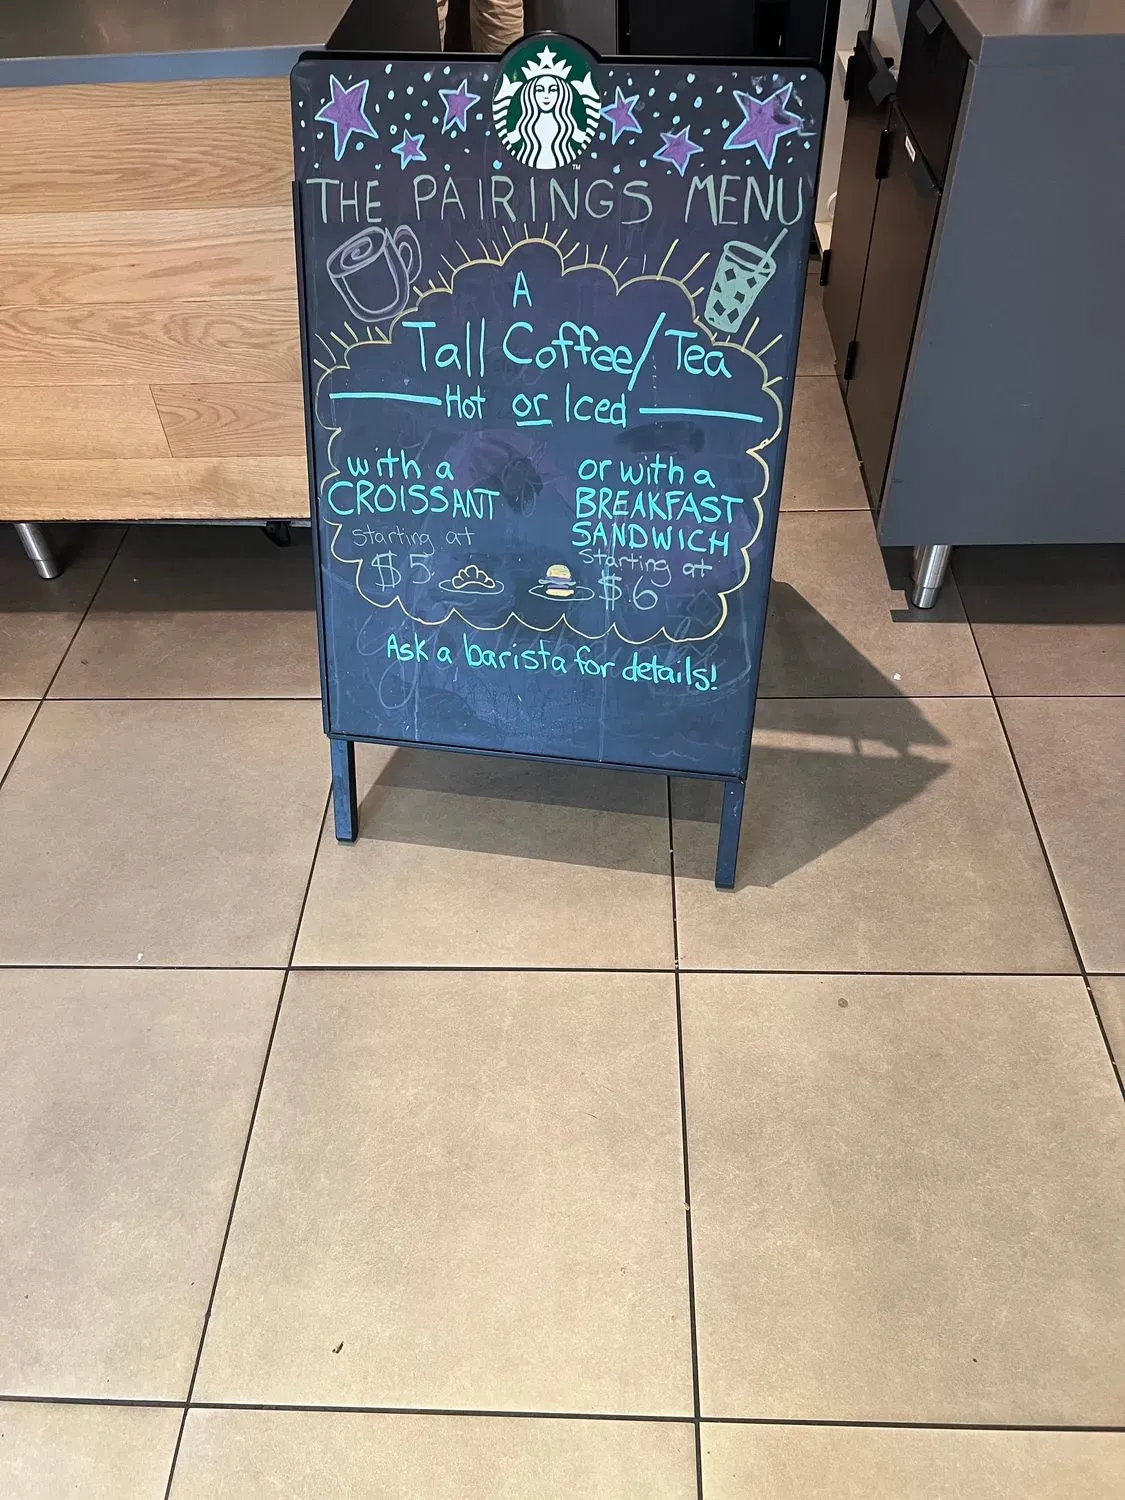 THE PAIRINGS MENU
A
Tall Coffee/Tea
Hot or Iced
with a
CROISSANT
Starting at
$5
or with a
BREAKFAST
SANDWICH
Starting at
$6
Ask a barista for details!
TM